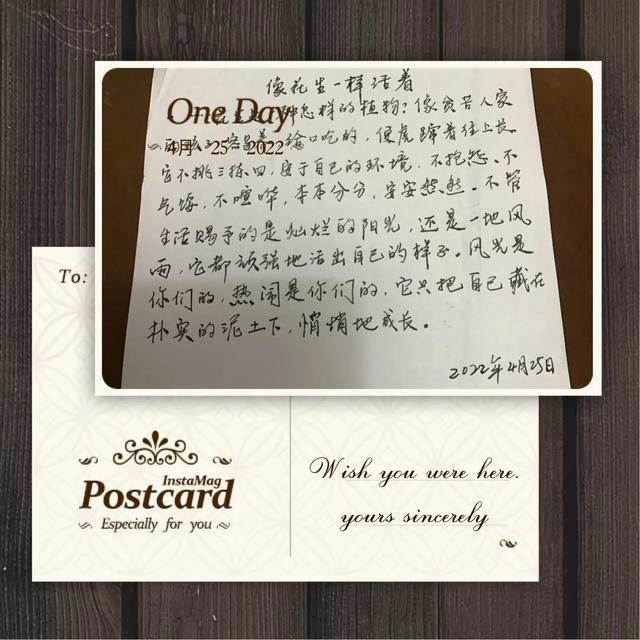 像花生一样活着
One Day
种怎样的植物?像贫苦人家
4月 25 2022
口吃的,便虎蹿着往上长。
它不挑三拣四,安于自己的环境,不抱怨、不
气馁,不喧哗,本本分分,安安然然。不管
生活赐予的是灿烂的阳光,还是一地风
雨,它都顽强地活出自己的样子。风光是
你们的,热闹是你们的,它只把自己藏在
朴实的泥土下,悄悄地成长。
2022年4月25日
To:
InstaMag
Postcard
Especially for you
Wish you were here.
yours sincerely